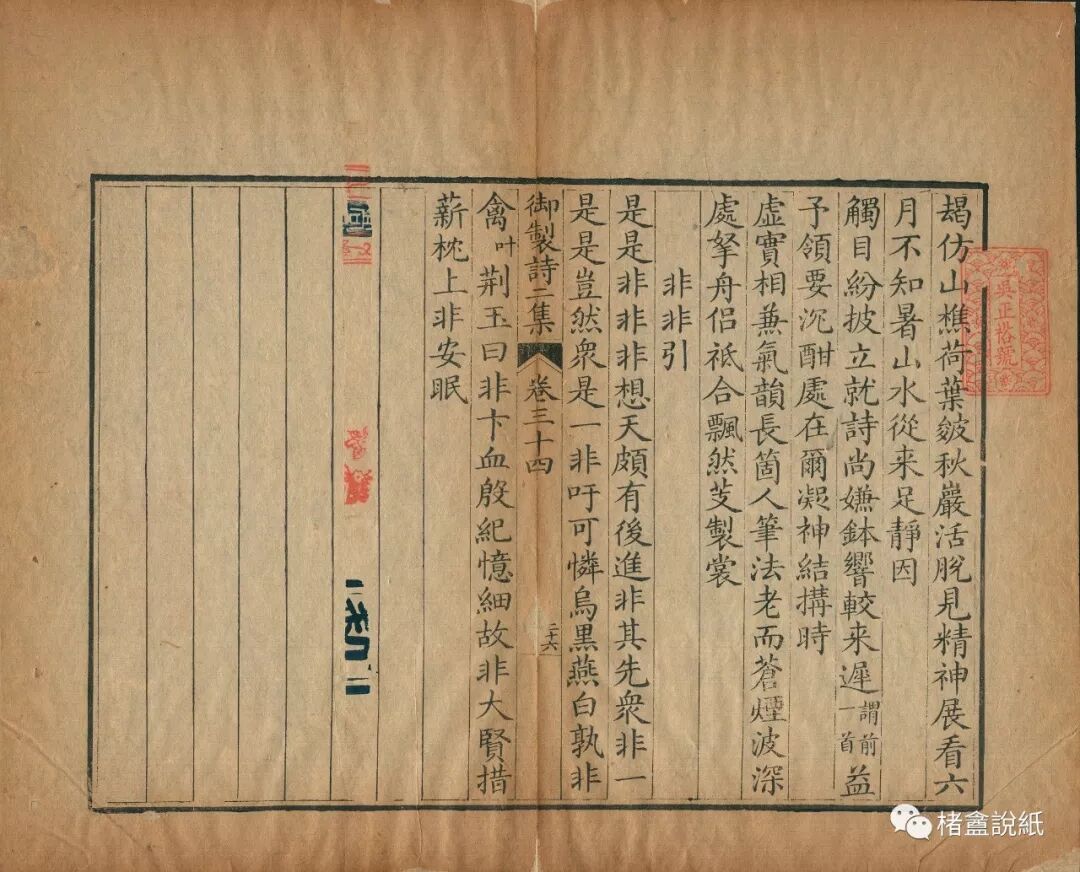 朅仿山樵荷葉皴秋巖活脫見精神展看六
月不知暑山水從来足靜因
觸目紛披立就詩尚嫌鉢響較来遲謂前一首益
予領要沉酣處在爾凝神結搆時
虛實相兼氣韻長箇人筆法老而蒼煙波深
處拏舟侣祗合飄然芰製裳
非非引
是是非非非想天頗有後進非其先衆非一
是是豈然衆是一非吁可憐烏黒燕白孰非
御製詩二集 卷三十四 二十六
禽叶荆玉曰非卞血殷紀憶細故非大賢措
薪枕上非安眠
吳正裕號
楮盦說紙